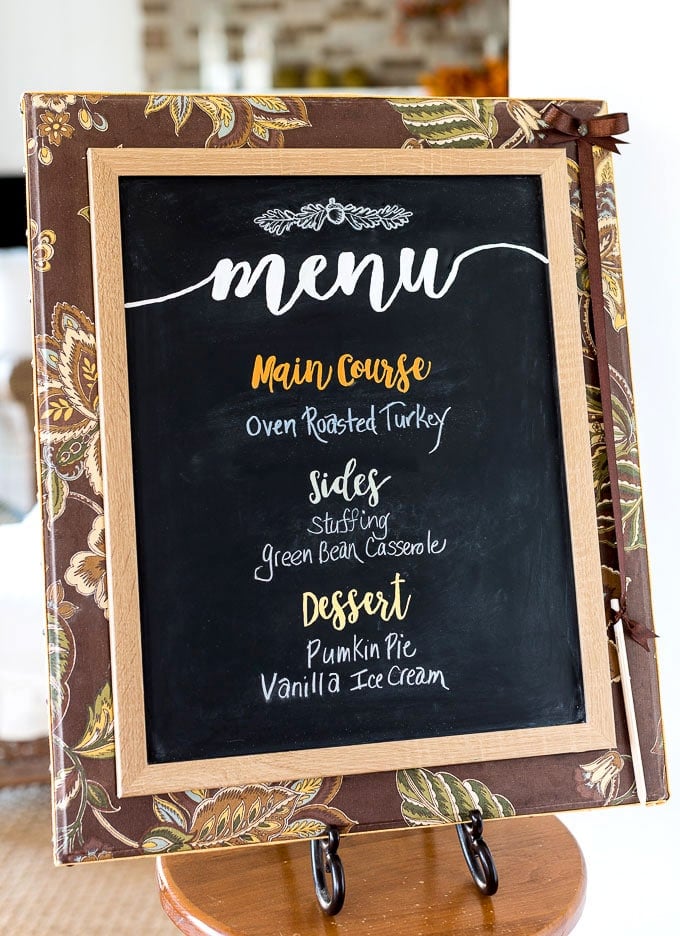 menu
Main Course
Oven Roasted Turkey
Sides
Stuffing
Green Bean Casserole
Dessert
Pumkin Pie
Vanilla Ice Cream